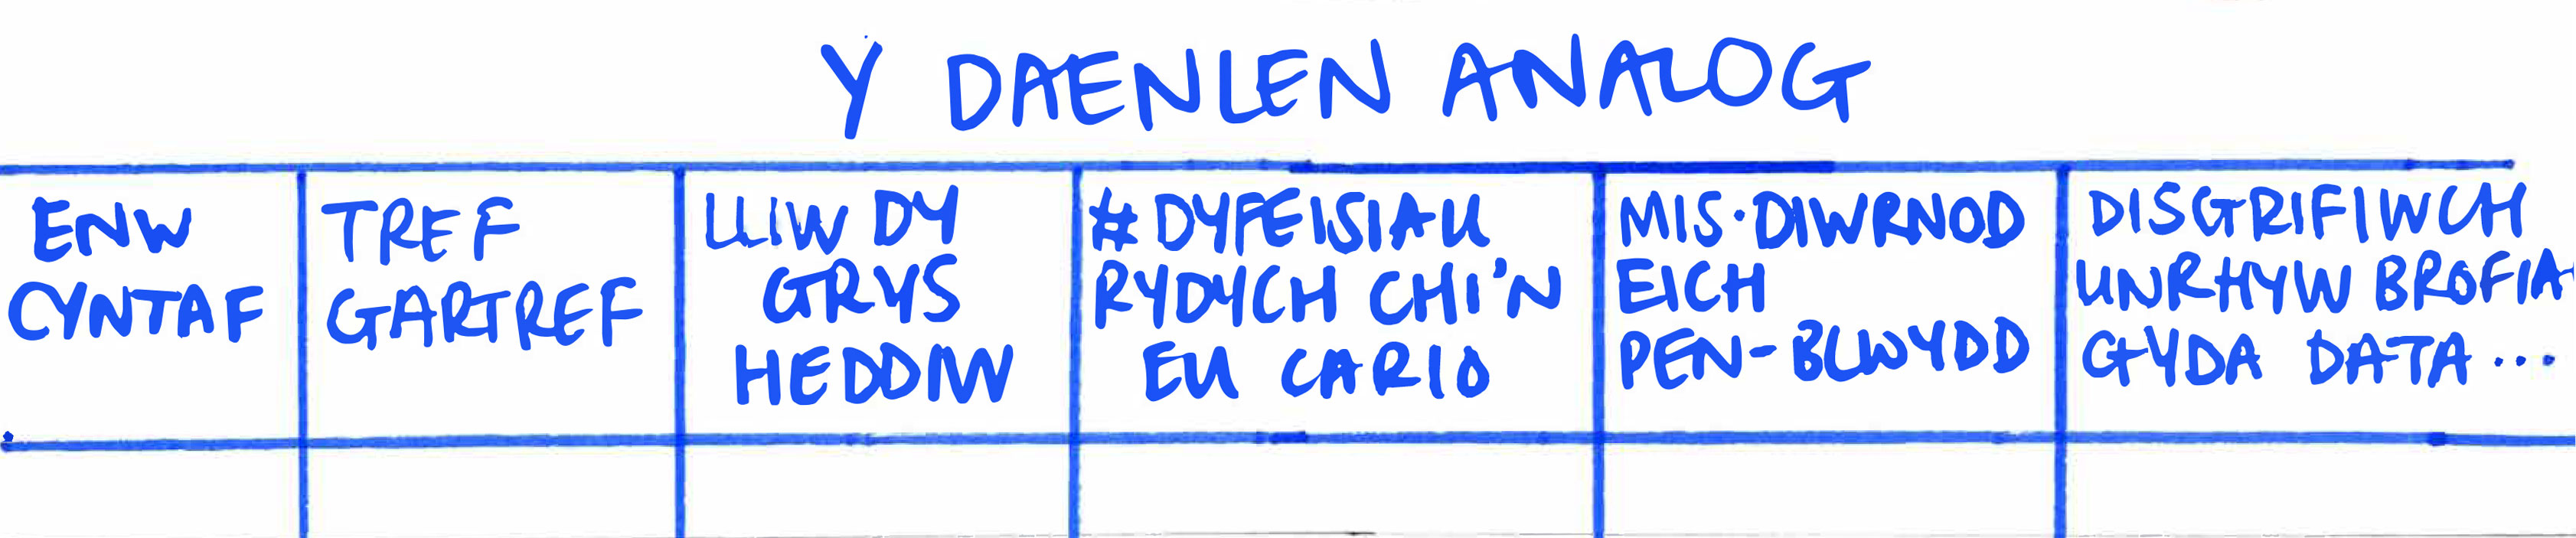 Y DAENLEN ANALOG
ENW
CYNTAF
TREF
GARTREF
LLIW DY
GRYS
HEDDIW
# DYFEISIAU
RYDYCH CHI'N
EU CARIO
MIS·DIWRNOD
EICH
PEN-BLWYDD
DISGRIFIWCH
UNRHYW BROFIA
GYDA DATA ...